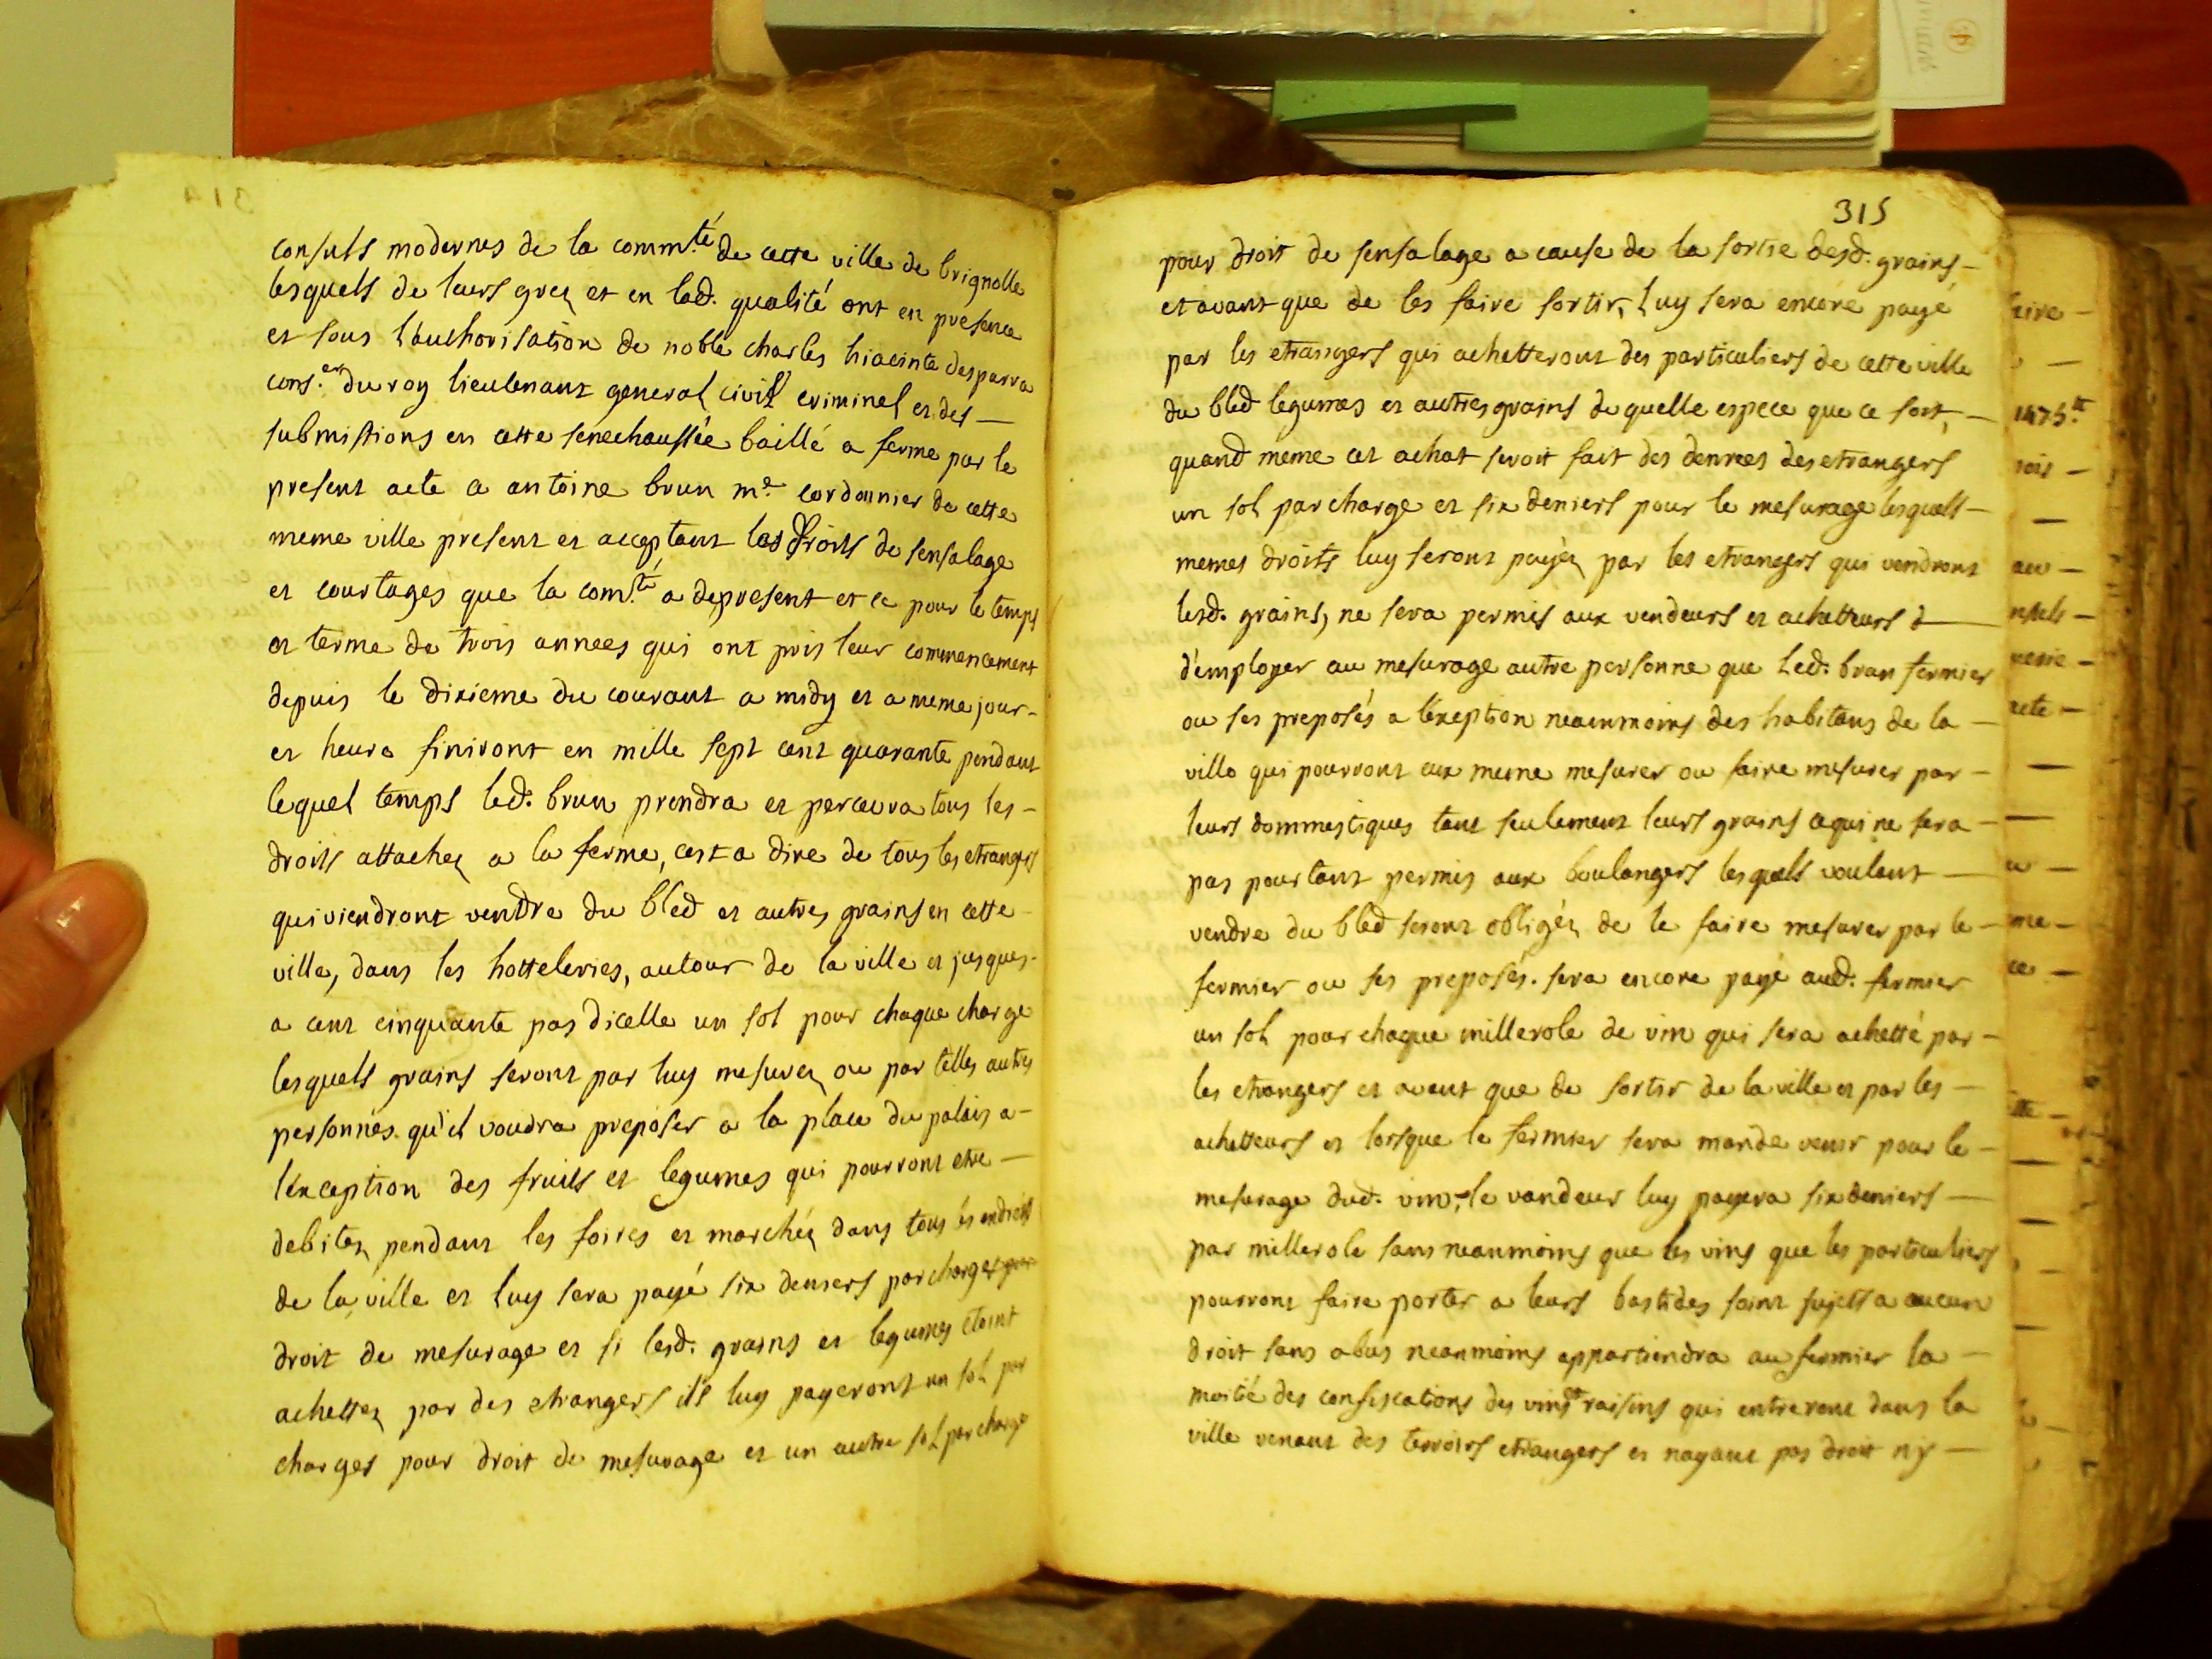 consuls modernes de la comm.té de cette ville de brignolle
lesquels de leurs grez et en lad. qualité ont en presence
et sous l'authorisation de noble charles hiacinte desparra
cons.er du roy lieutenant general civil criminel et des —
submissions en cette senechaussée baillé a ferme par le
present acte a antoine brun m.e cordonnier de cette
meme ville present et acceptant les droits de sensalage
et courtages que la com.té a depresent et ce pour le temps
et terme de trois annees qui ont pris leur commencement
depuis le dixieme du courant a midy et a meme jour -
et heure finiront en mille sept cent quarante pendant
lequel temps led. brun prendra et percevra tous les -
droits attachez a la ferme, cest a dire de tous les etrangers
qui viendront vendre du bled et autres grains en cette -
ville, dans les hotteleries, autour de la ville et jusques -
a cent cinquante pas dicelle un sol pour chaque charge
lesquels grains seront par luy mesurez ou par telles autres
personnes qu'il voudra preposer a la place du palais a -
l'exception des fruits et legumes qui pourront etre —
debitez pendant les foires et marchéz dans tous les endroits
de la ville et luy sera payé six deniers par charges pour
droit de mesurage et si lesd. grains et legumes etoint
achettez par des etrangers ils luy payeront un sol par
charges pour droit de mesurage et un autre sol par charge
315
pour droit de sensalage a cause de la sortie desd. grains —
et avant que de les faire sortir, luy sera encore payé
par les etrangers qui achetteront des particuliers de cette ville
du bled legumes et autres grains de quelle espece que ce soit, —
quand meme cet achat seroit fait des denrees des etrangers
un sol par charge et six deniers pour le mesurage lesquels —
memes droits luy seront payéz par les etrangers qui vendront
lesd. grains, ne sera permis aux vendeurs et achetteurs d —
d'employer au mesurage autre personne que led. brun fermier
ou ses preposés a l'exeption neammoins des habitans de la —
ville qui pourront eux meme mesurer ou faire mesurer par —
leurs dommestiques tant seulement leurs grains ce qui ne sera —
pas pourtant permis aux boulangers lesquels voulant —
vendre du bled seront obligéz de le faire mesurer par le —
fermier ou ses preposés. sera encore payé aud. fermier
un sol pour chaque millerole de vin qui sera achetté par —
les etrangers et avant que de sortir de la ville et par les —
achetteurs et lorsque le fermier sera mandé venir pour le —
mesurage dud. vin, le vandeur luy payera six deniers —
par millerole sans neanmoins que les vins que les particuliers
pourront faire porter a leurs bastides soint sujets a aucun
droit sans abus neanmoins appartiendra au fermier la —
moitié des confiscations des vins et raisins qui entreront dans la
ville venant des terroirs etrangers et nayant pas droit ny —
1475.tt